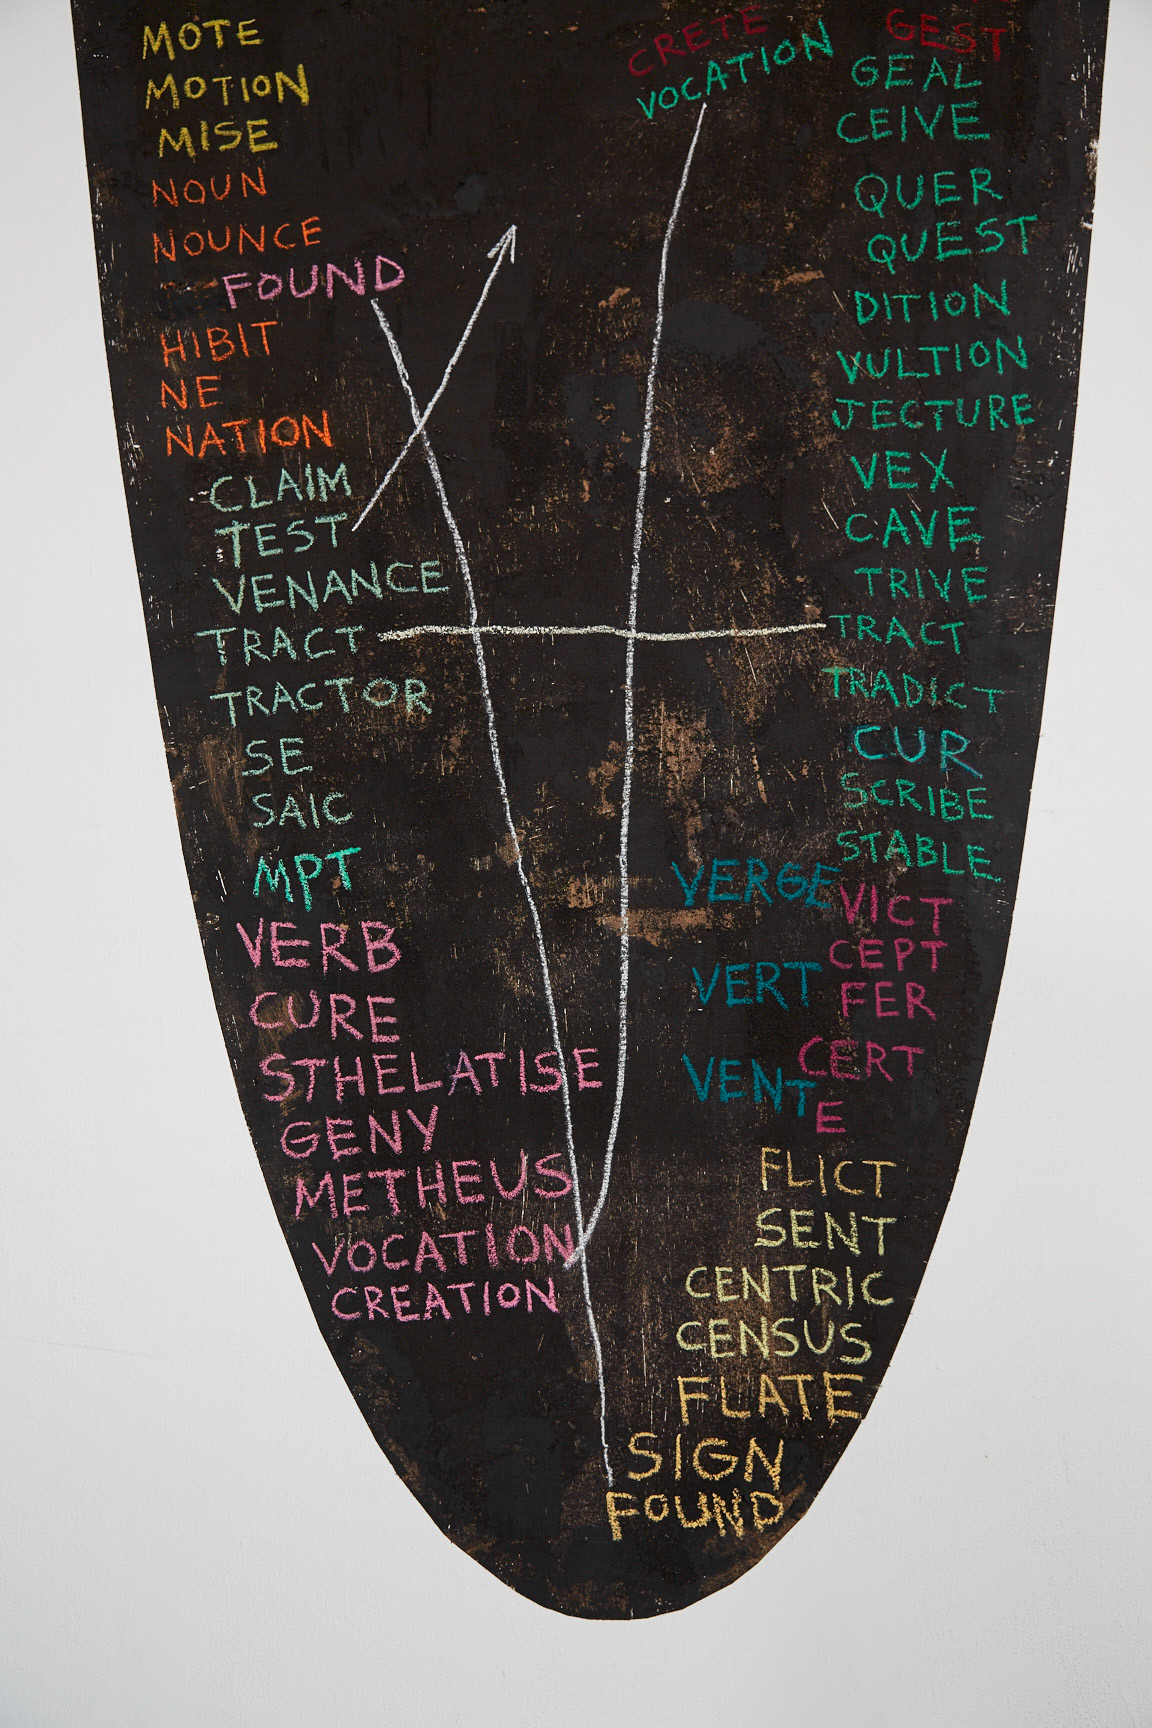 MOTE
MOTION
MISE
NOUN
NOUNCE
FOUND
HIBIT
NE
NATION
CLAIM
TEST
VENANCE
TRACT
TRACTOR
SE
SAIC
MPT
VERB
CURE
STHELATISE
GENY
METHEUS
VOCATION
CREATION
CRETE
VOCATION
GEST
GEAL
CEIVE
QUER
QUEST
DITION
VULTION
JECTURE
VEX
CAVE
TRIVE
TRACT
TRADICT
CUR
SCRIBE
STABLE
VERGE
VICT
CEPT
VERT
FER
CERT
VENT
E
FLICT
SENT
CENTRIC
CENSUS
FLATE
SIGN
FOUND